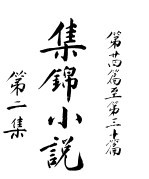 第廿四篇至第三十篇
集錦小説
第二集